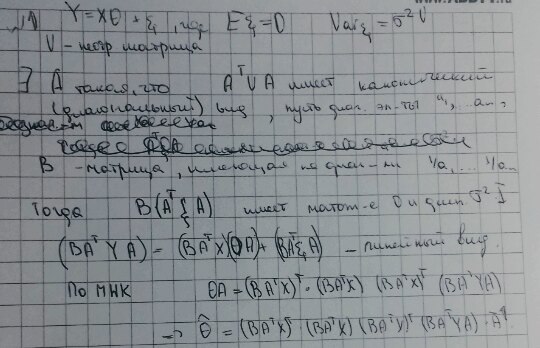 №1 Y = Xθ + ξ, где Eξ = 0 Var ξ = σ² V
V - матрица
∃ A такая, что AᵀVA имеет канонический
(диагональный) вид, пусть диаг. эл-ты a₁, ... aₙ,
B - матрица, имеющая на диаг-ли 1/a, ... 1/aₙ
Тогда B(Aᵀ ξ A) имеет матож-е 0 и дисп. σ² I
(BAᵀ Y A) = (BAᵀX)(θA) + (BAᵀξA) - линейный вид.
По МНК θA = (BAᵀX)ᵀ · (BAᵀX) (BAᵀX)ᵀ (BAᵀYA)
→ θ̂ = (BAᵀX)ᵀ · (BAᵀX) (BAᵀX)ᵀ (BAᵀYA) ·